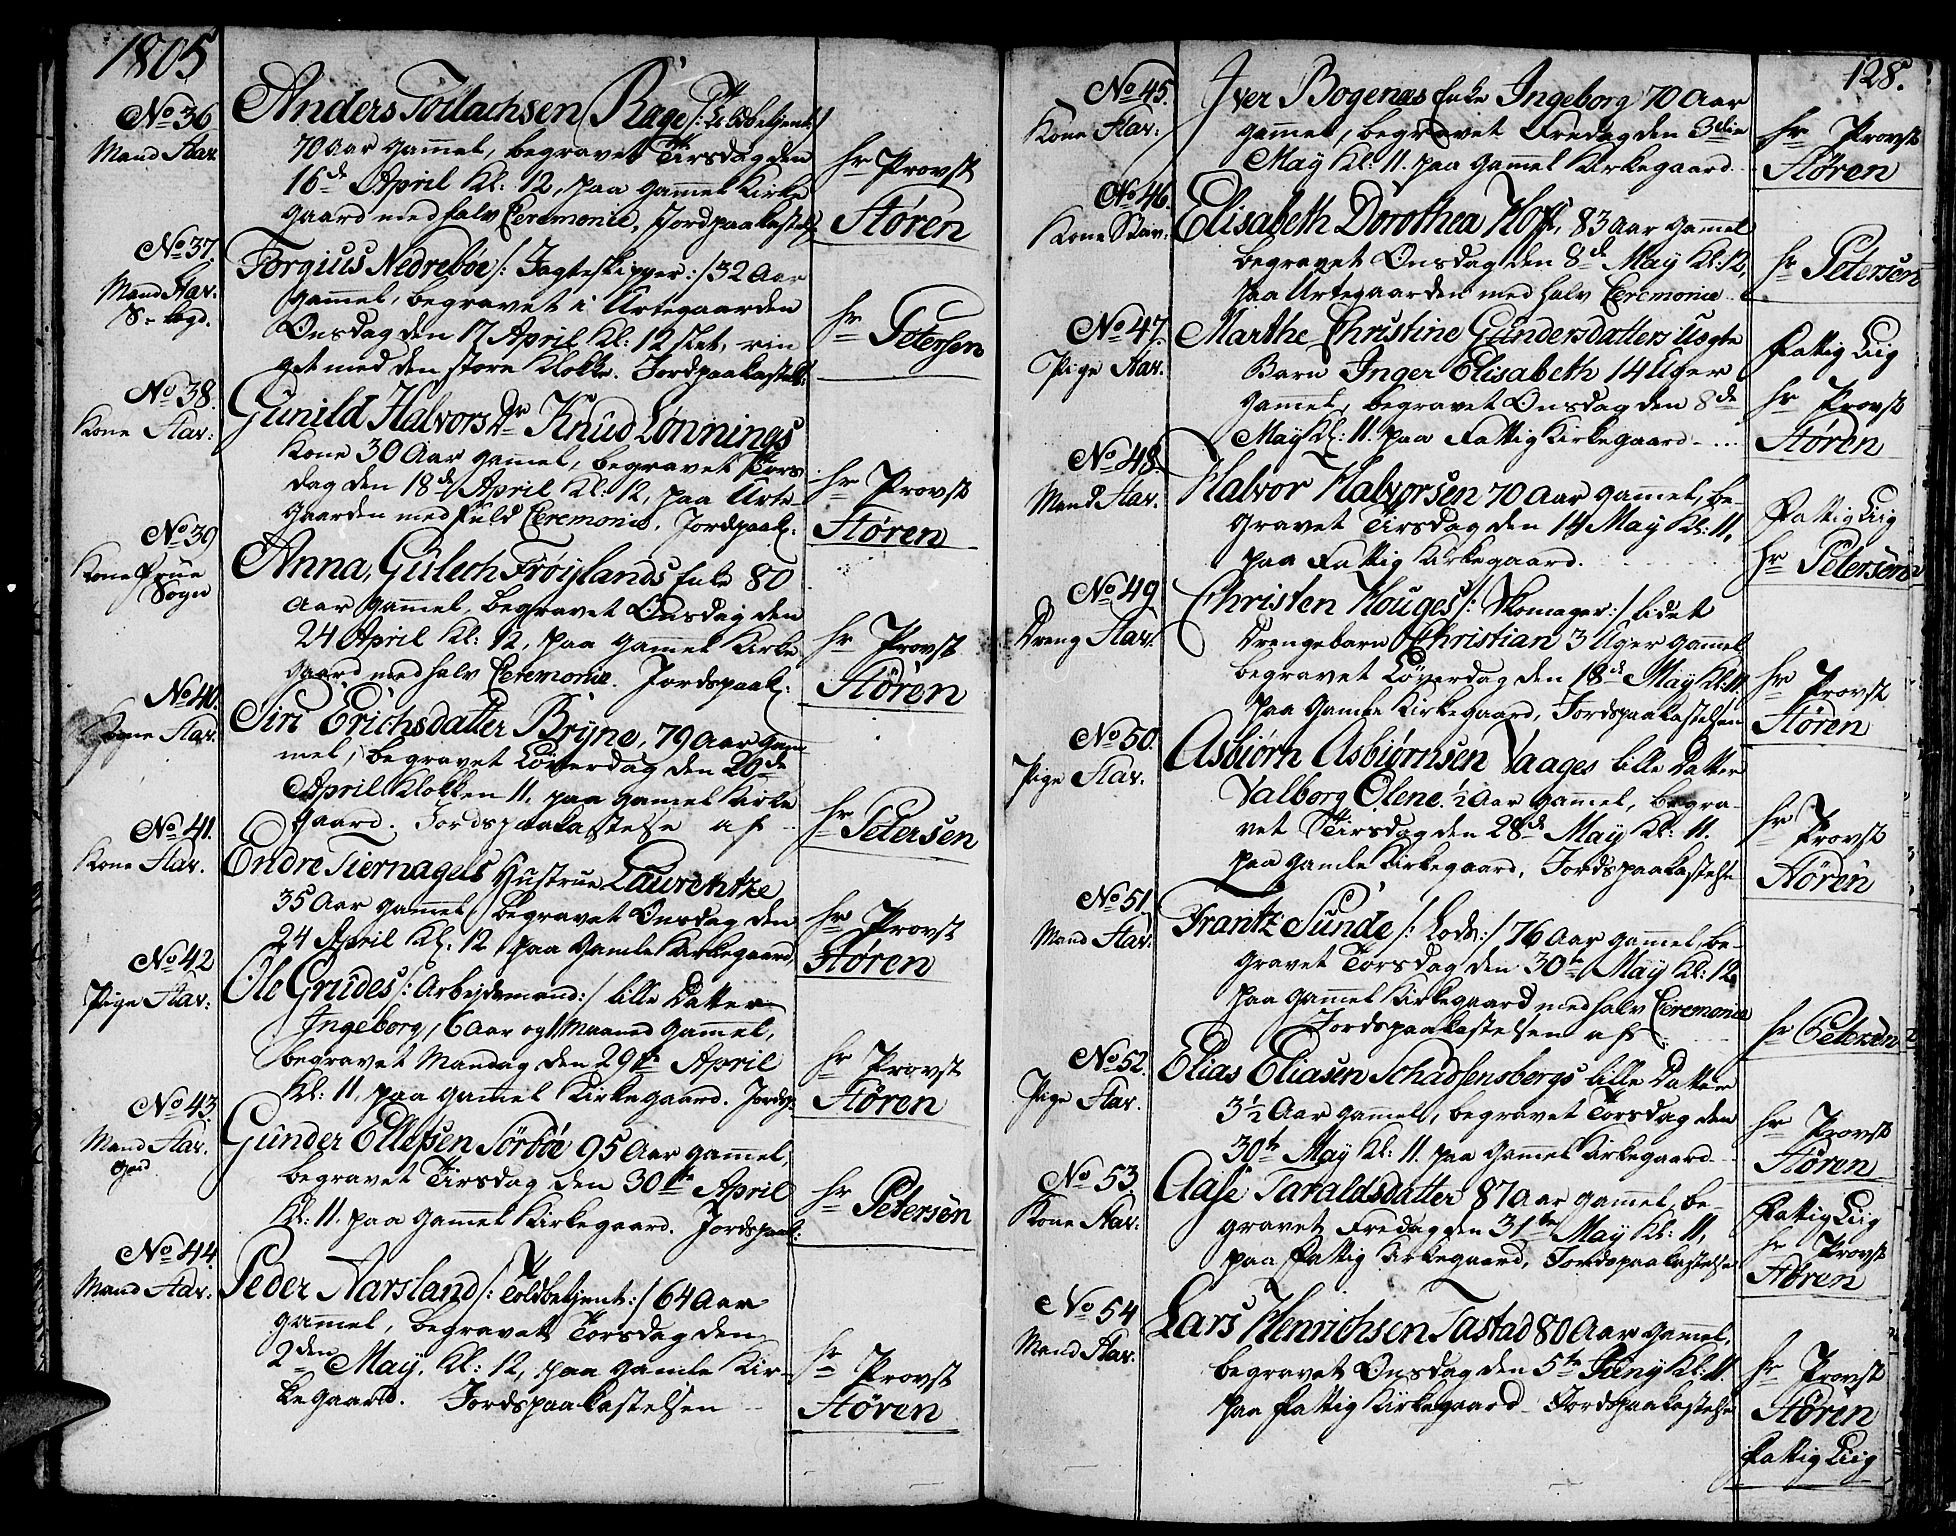 1805
No 36
Mand Stav.
Anders Torlachsen Rage /: Toldbetjent :/
70 Aar gammel, begravet Tirsdag den
16de April Kl: 12, paa gammel Kirke
gaard med halv Ceremonie, Jordpaakastels.
hr Provst
Støren
No 37.
Mand Stav.
Torgius Nedreboe /: Jagteskipper :/ 32 Aar
gammel, begravet i Urtegaarden
Onsdag den 17 April Kl: 12 slet, rin
get med den store Klokke. Jordpaakastels:
hr Petersen
No 38.
Kone Stav:
Gunild Halvors Dr Knud Lønnings
Kone 30 Aar gammel, begravet Tors
dag den 18de April Kl: 12, paa Urte-
gaarden med fuld Ceremonie. Jordpaak:
hr Provst
Støren
No 39
Kone Frue
Sogn
Anna, Gulech Frøylands Enke 80
Aar gammel, begravet Onsdag den
24 April Kl: 12, paa gammel Kirke
gaard med halv Ceremonie. Jordspaak:
hr Provst
Støren
No 40.
Kone Stav.
Siri Erichsdatter Bryne, 79 Aar gam
mel, begravet Løverdag den 20de
April Klokken 11. paa gamel Kirke
gaard. Jordspaakastelse af
hr Petersen
No 41.
Kone Stav.
Endre Tiernagels Hustrue Laurentze
35 Aar gammel, begravet Onsdag den
24 April Kl: 12 paa Gamle Kirkegaard,
hr Provst
Støren
No 42
Pige Stav:
Ole Grudes /: Arbeydsmand :/ lille Datter
Ingeborg, 6 Aar og 1 Maaned gammel,
begravet Mandag den 29te April
Kl: 11, paa gammel Kirkegaard. Jordsp:
hr Provst
Støren
No 43
Mand Stav.
Gunder Ellefsen Sørboe 95 Aar gammel,
begravet Tirsdag den 30te April
Kl: 11. paa gammel Kirkegaard. Jordspaak:
hr Petersen
No 44.
Mand Stav.
Peder Aarsland /: Toldbetjent :/ 64 Aar
gammel, begravet Torsdag den
2den May, Kl: 12, paa gamle Kir-
kegaard. Jordspaakastelsen
hr Provst
Støren
128.
No 45.
Kone Stav.
Iver Bogenæs Enke Ingeborg 70 Aar
gammel, begravet Fredag den 3die
May Kl: 11. paa gammel Kirkegaard
hr Provst
Støren
No 46.
Kone Stav:
Elisabeth Dorothea Hoff, 83 Aar gammel
begravet Onsdag den 8de May Kl: 12,
paa Urtegaarden med halv Ceremonie
hr Petersen
No 47.
Pige Stav.
Marthe Christine Gundersdatters uægte
Barn Inger Elisabeth 14 Uger
gammel, begravet Onsdag den 8de
May Kl: 11. paa Fattig Kirkegaard
Fattig Liig
hr Provst
Støren
No 48.
Mand Stav.
Halvor Halvorsen 70 Aar gammel, be-
gravet Tirsdag den 14 May Kl: 11,
paa Fattig Kirkegaard.
Fattig Liig
hr Petersen
No 49
Dreng Stav.
Christen Houges /: Skomager :/ lidet
Drengebarn Christian 3 Uger gammel
begravet Løverdag den 18de May Kl: 11
paa gamle Kirkegaard, Jordspaakastelsen
hr Provst
Støren
No 50.
Pige Stav.
Asbiørn Asbiørnsen Vaages lille Datter
Valborg Olene. ½ Aar gammel, begra-
vet Tirsdag den 28de May Kl: 11.
paa gamle Kirkegaard, Jordspaakastelse
hr Provst
Støren
No 51
Mand Stav.
Frantz Sunde /: Lods :/ 76 Aar gammel, be-
gravet Torsdag den 30te May Kl: 12.
paa gammel Kirkegaard med halv Ceremonie
Jordspaakastelsen af
hr Petersen
No 52.
Pige Stav.
Elias Eliasen Schadsensbergs lille Datter
3½ Aar gammel, begravet Torsdag den
30te May Kl: 11. paa gammel Kirkegaard
hr Provst
Støren
No 53
Kone Stav.
Aase Taraldsdatter 87 Aar gammel be-
gravet Fredag den 31te May Kl: 11,
paa Fattig Kirkegaard, Jordspaakastelse
Fattig Liig
hr Provst
Støren
No 54
Mand Stav.
Lars Henrichsen Tastad 80 Aar gamel,
begravet Onsdag den 5te Juny Kl: 11.
paa Fattig Kirkegaard Jordspaakastelse
hr Provst
Støren
Fattig Liig